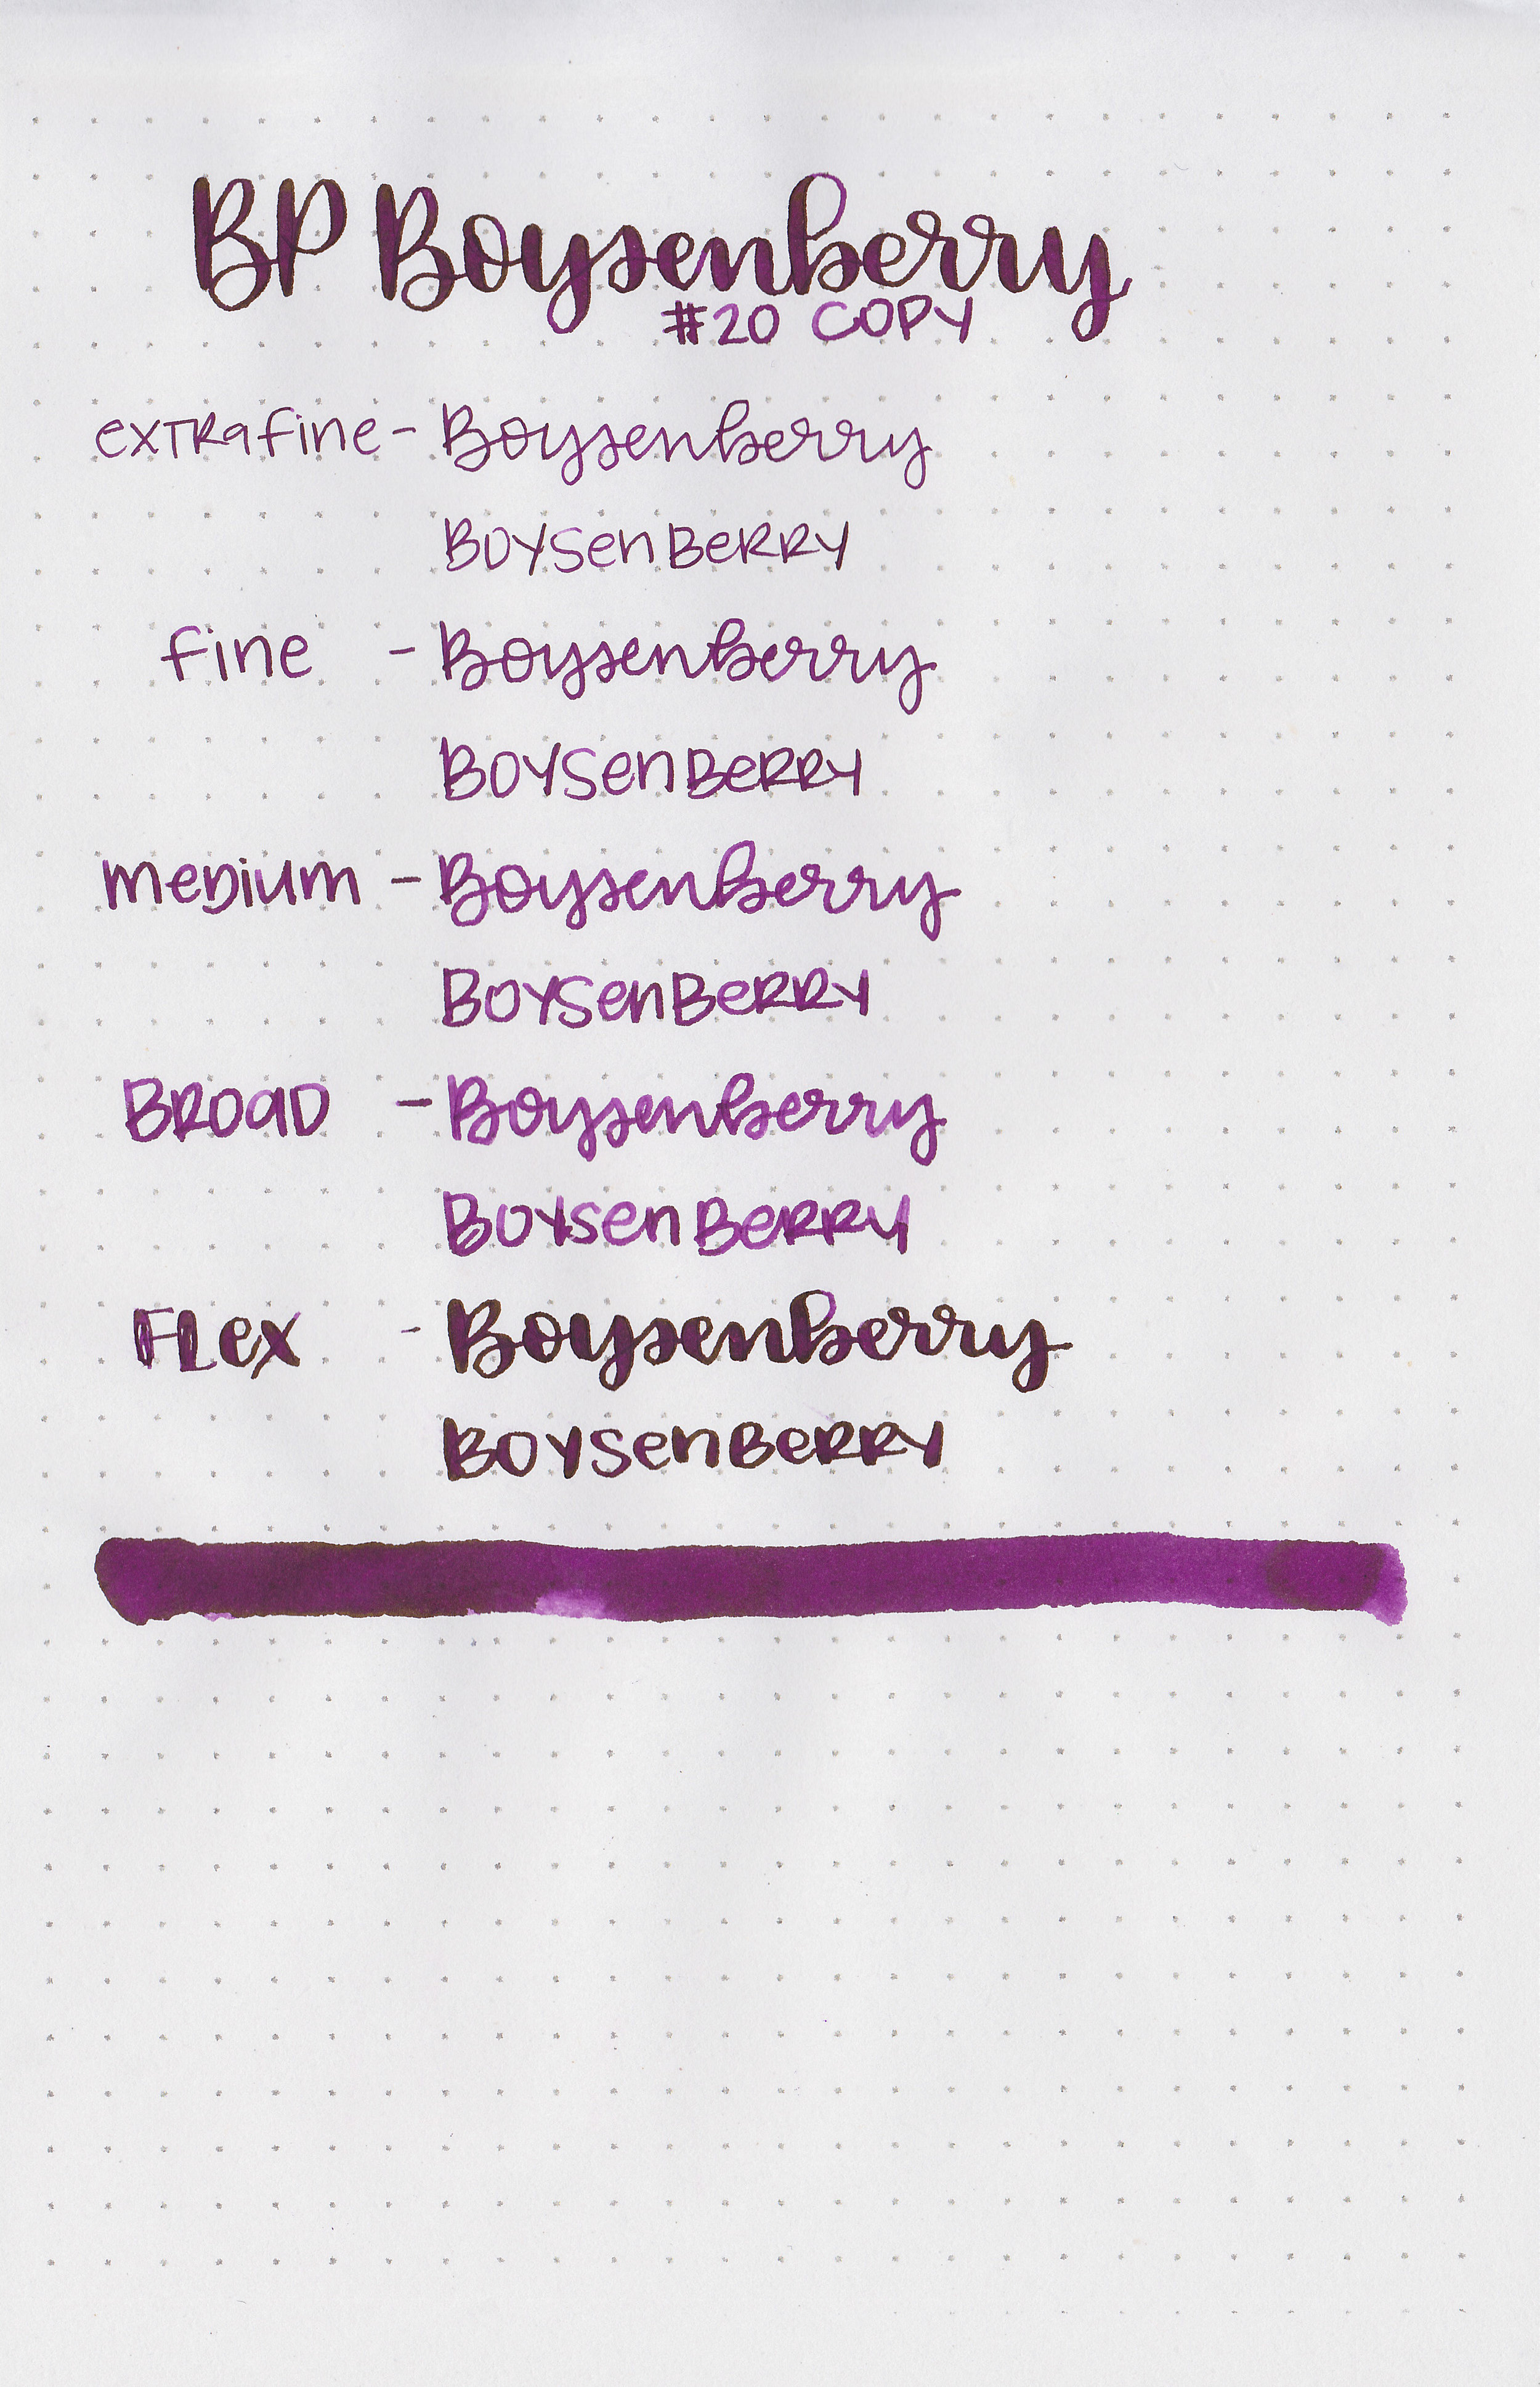 BP Boysenberry
#20 COPY
extrafine - Boysenberry
BOYSenBeRRY
fine - Boysenberry
BOYSenBeRRY
meDium - Boysenberry
BOYSenBeRRY
BROaD - Boysenberry
BOYSenBeRRY
FLex - Boysenberry
BOYSenBeRRY